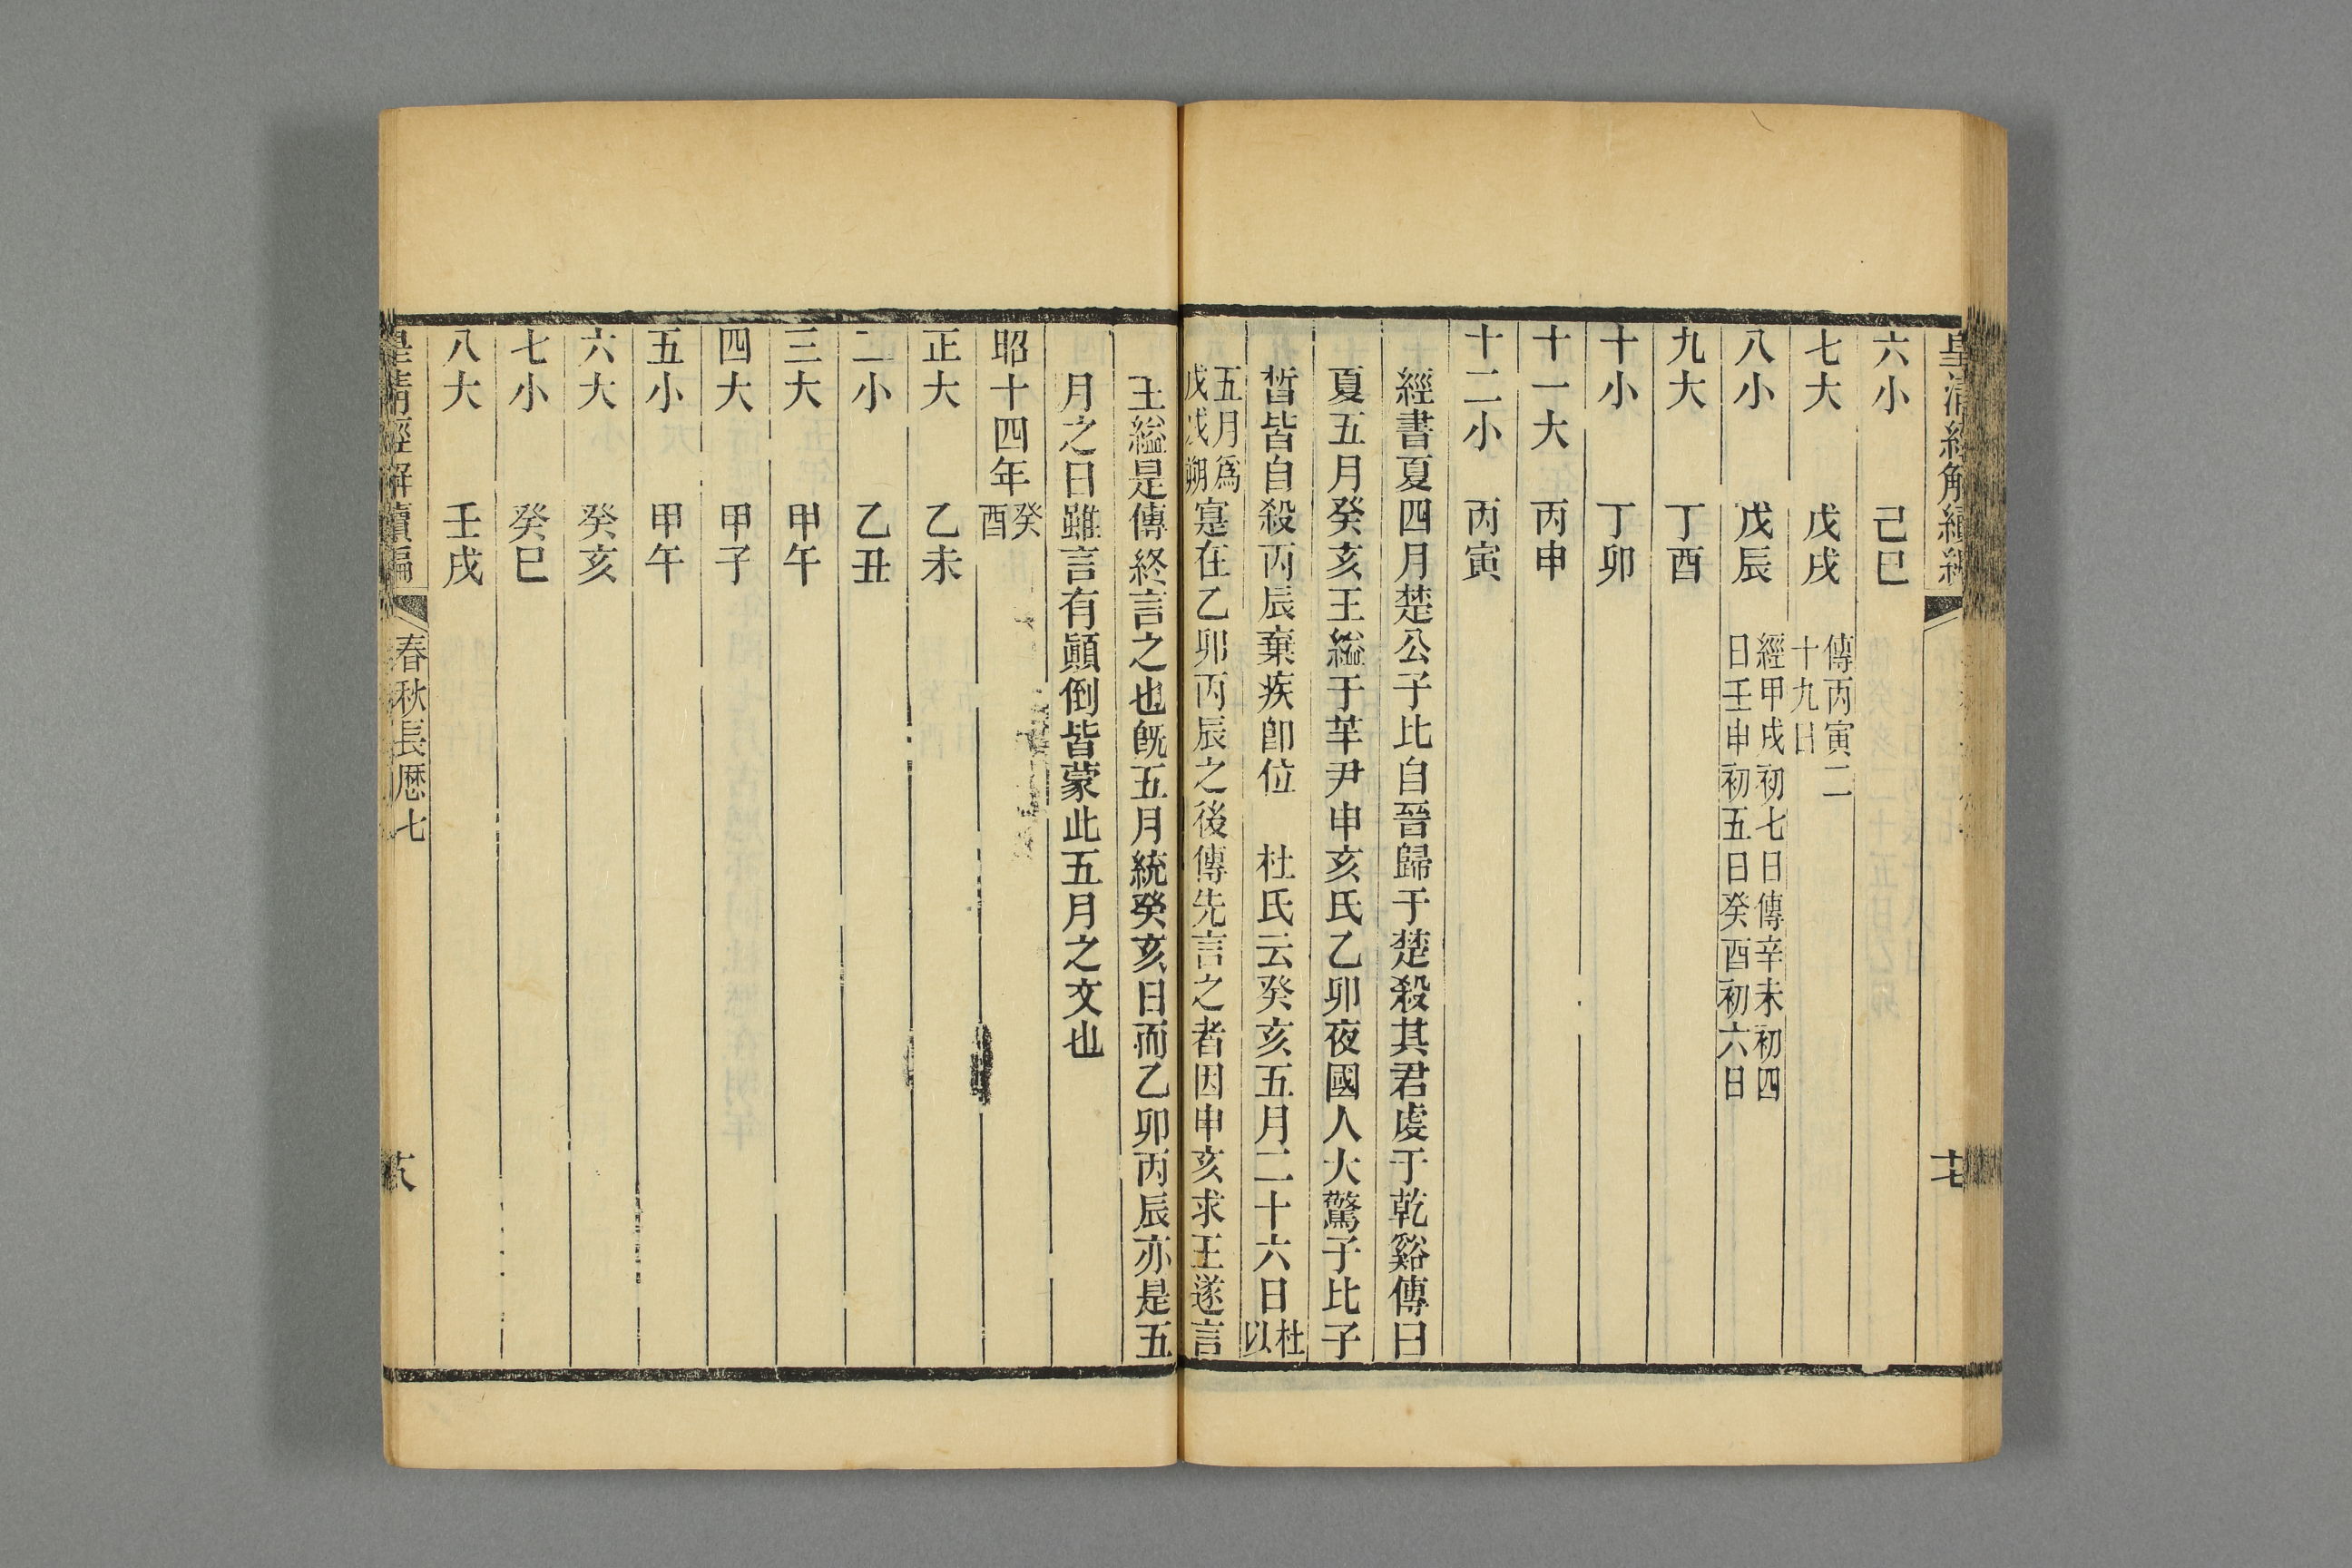 皇清經解續編
六小　己巳
七大　戊戌　傳丙寅二
十九日
八小　戊辰　經甲戌初七日傳辛未初四
日壬申初五日癸酉初六日
九大　丁酉
十小　丁卯
十一大　丙申
十二小　丙寅
經書夏四月楚公子比自晉歸于楚殺其君虔于乾谿傳曰
夏五月癸亥王縊于芉尹申亥氏乙卯夜國人大驚子比子
皙皆自殺丙辰棄疾卽位　杜氏云癸亥五月二十六日杜
以
五月爲
戊戌朔
寔在乙卯丙辰之後傳先言之者因申亥求王遂言
王縊是傳終言之也旣五月統癸亥日而乙卯丙辰亦是五
月之日雖言有顚倒皆蒙此五月之文也
昭十四年癸
酉
正大　乙未
二小　乙丑
三大　甲午
四大　甲子
五小　甲午
六大　癸亥
七小　癸巳
八大　壬戌
皇清經解續編　春秋長厯七